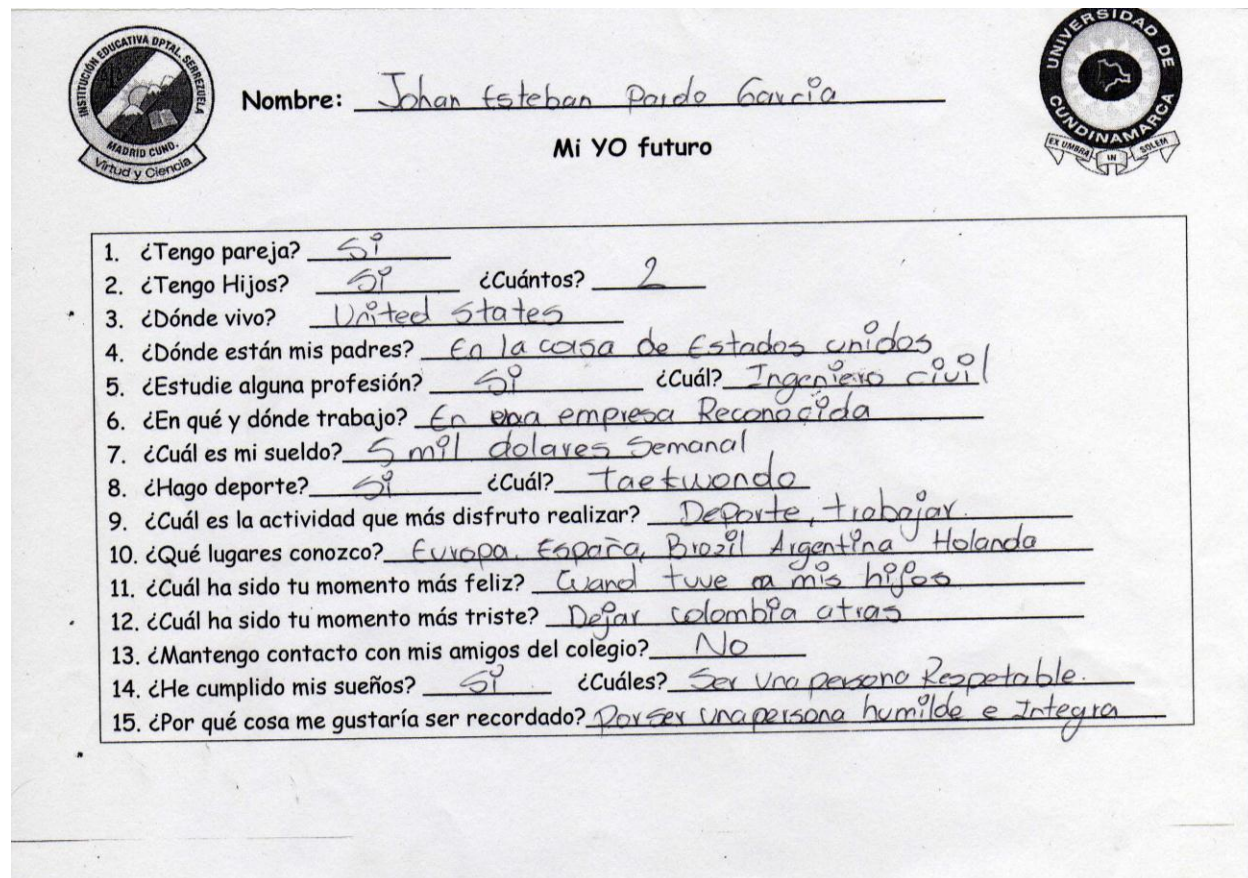 INSTITUCIÓN EDUCATIVA DPTAL. SERREZUELA
MADRID CUND.
Virtud y Ciencia
UNIVERSIDAD DE CUNDINAMARCA
EX UMBRA IN SOLEM
Nombre: Johan Esteban Pardo García
Mi YO futuro
1. ¿Tengo pareja? Si
2. ¿Tengo Hijos? Si ¿Cuántos? 2
3. ¿Dónde vivo? United States
4. ¿Dónde están mis padres? En la casa de Estados unidos
5. ¿Estudie alguna profesión? Si ¿Cuál? Ingeniero civil
6. ¿En qué y dónde trabajo? En una empresa Reconocida
7. ¿Cuál es mi sueldo? 5 mil dolares Semanal
8. ¿Hago deporte? Si ¿Cuál? Taekwondo
9. ¿Cuál es la actividad que más disfruto realizar? Deporte, trabajar.
10. ¿Qué lugares conozco? Europa. España, Brazil Argentina Holanda
11. ¿Cuál ha sido tu momento más feliz? Cuand tuve a mis hijos
12. ¿Cuál ha sido tu momento más triste? Dejar colombia atras
13. ¿Mantengo contacto con mis amigos del colegio? No
14. ¿He cumplido mis sueños? Si ¿Cuáles? Ser una persona Respetable.
15. ¿Por qué cosa me gustaría ser recordado? Por ser una persona humilde e Integra